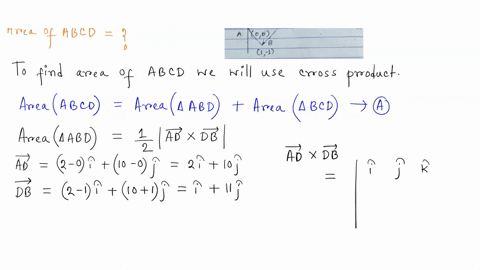 Area of ABCD = ?
A (0,0)
B
(1,-1)
To find area of ABCD we will use cross product.
Area (ABCD) = Area (△ ABD) + Area (△ BCD) → Ⓐ
Area (△ABD) = 1/2 |AD⃗ × DB⃗|
AD⃗ = (2-0) î + (10-0) ĵ = 2 î + 10 ĵ
DB⃗ = (2-1) î + (10+1) ĵ = î + 11 ĵ
AD⃗ × DB⃗
= | î ĵ k̂